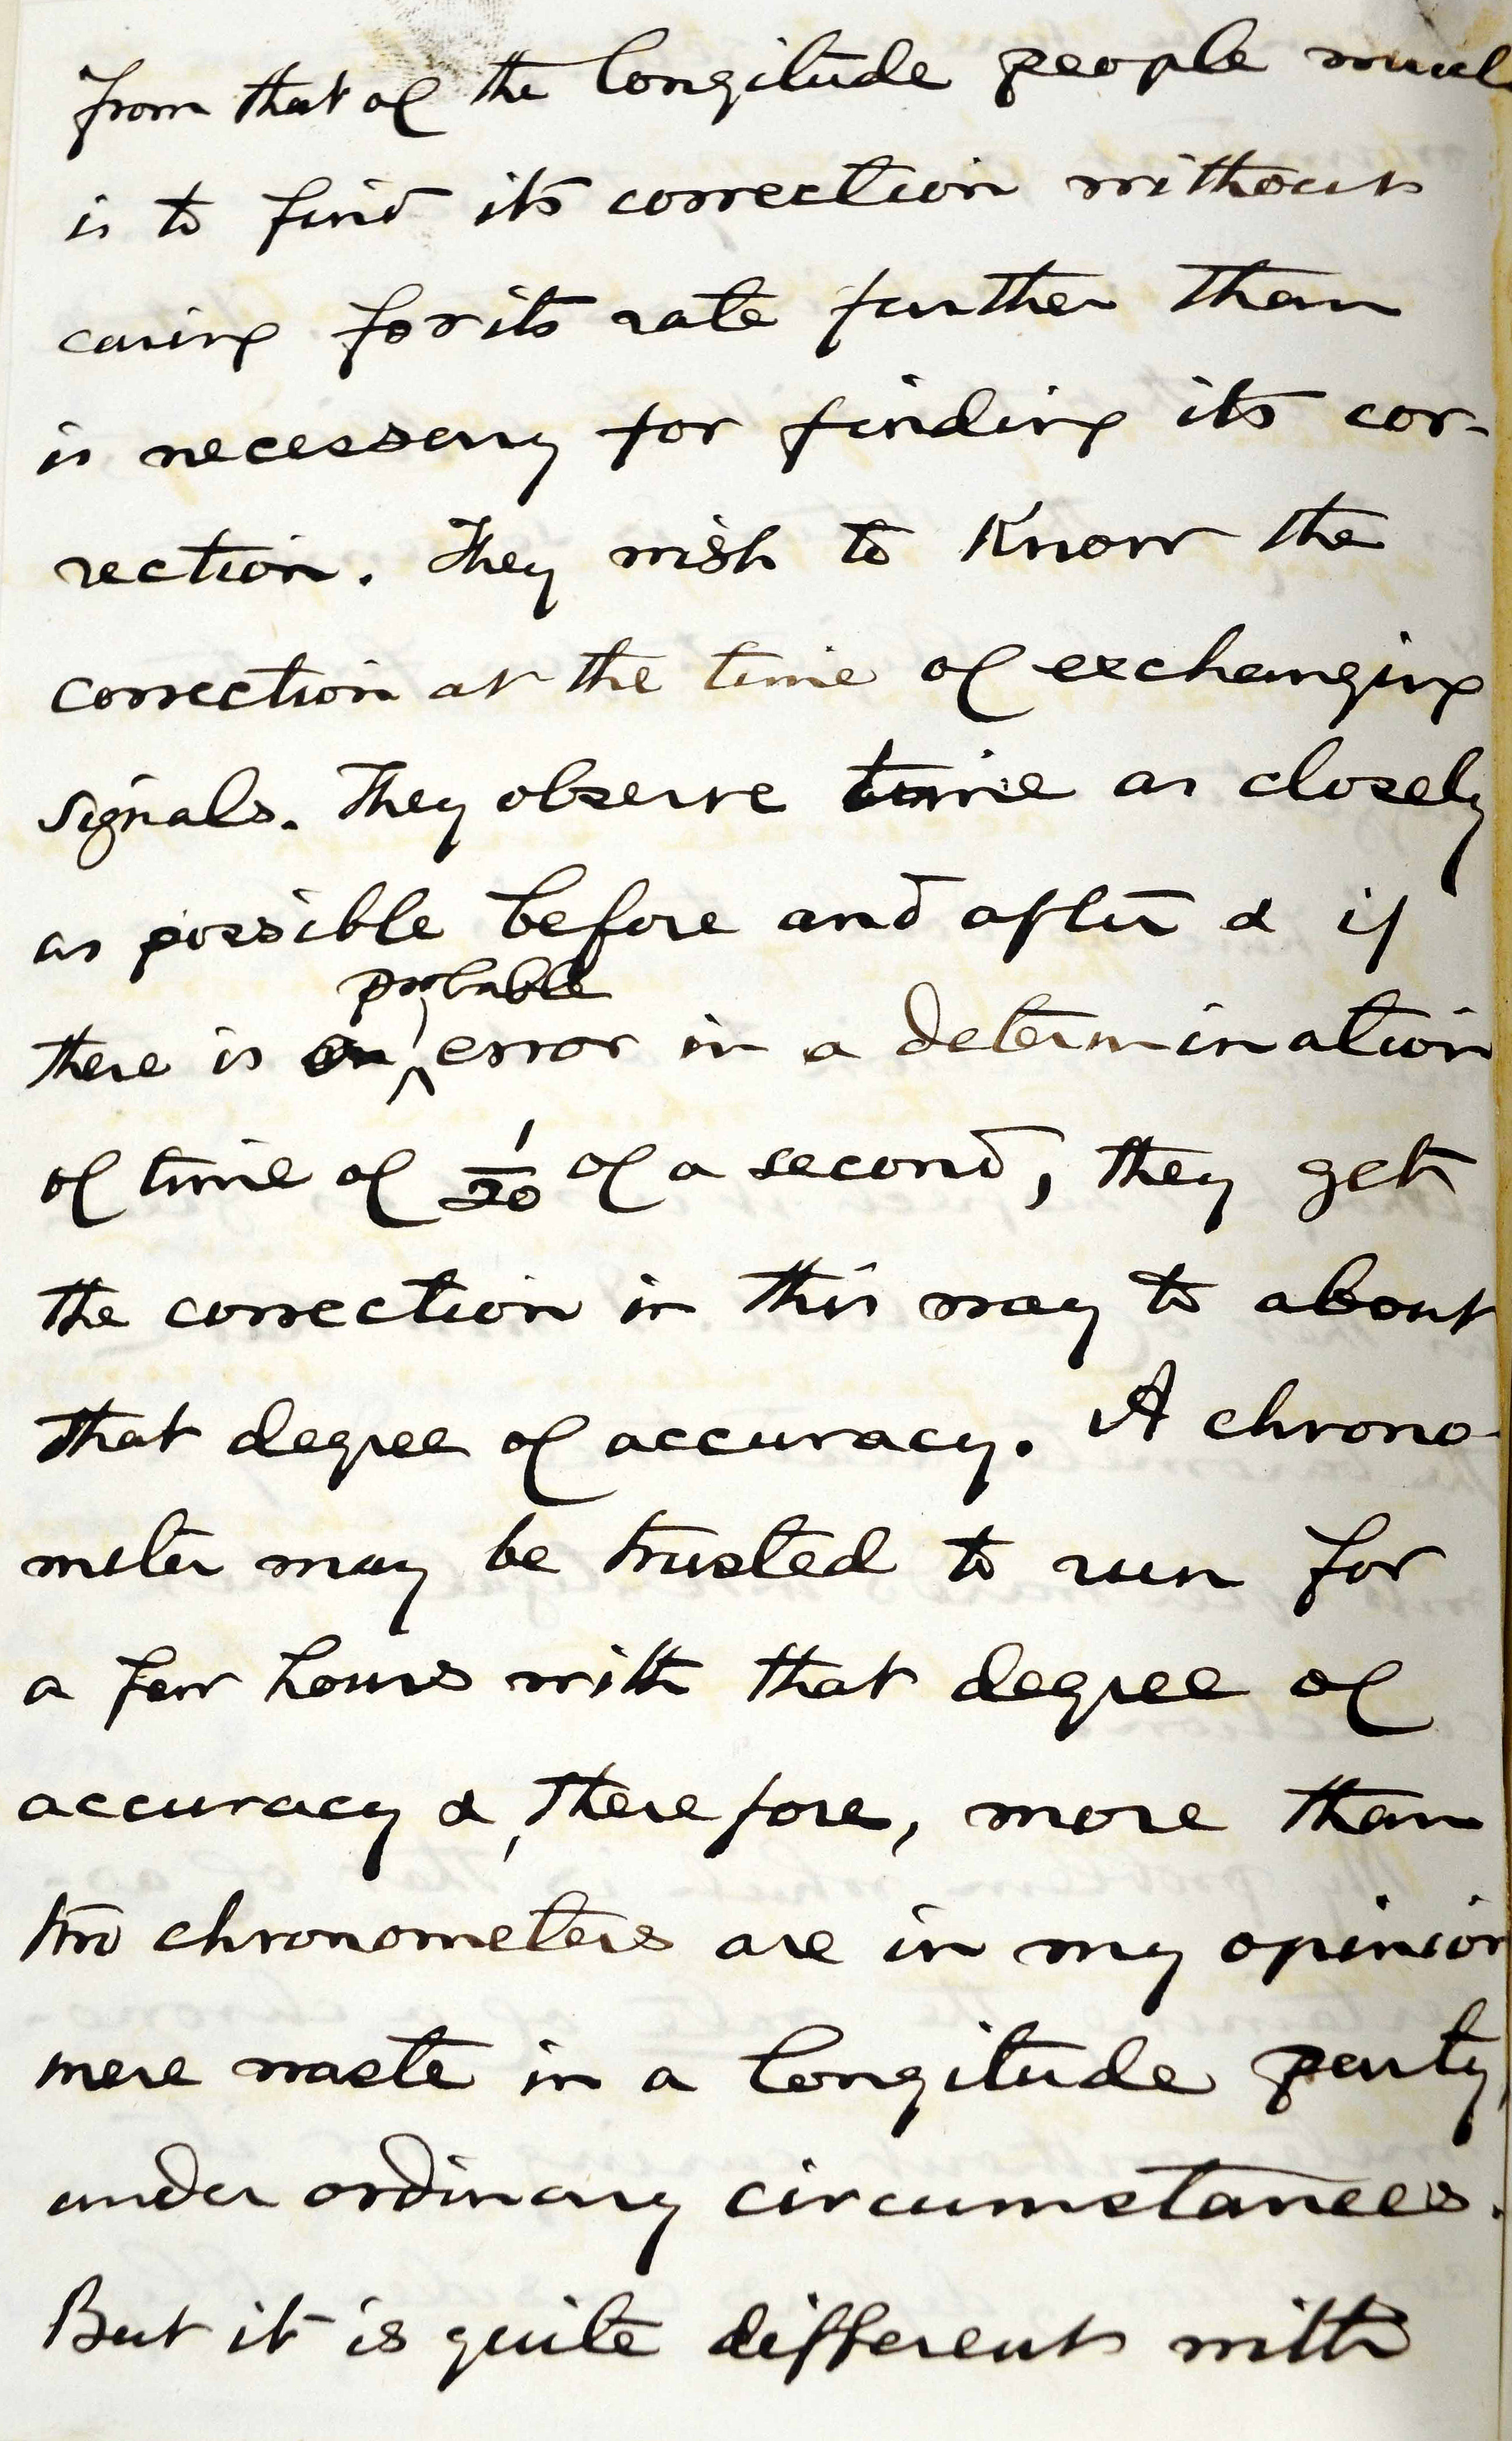 from that of the longitude people which
is to find its correction without
caring for its rate further than
is necessary for finding its cor-
rection. They wish to know the
correction at the time of exchanging
signals. They observe time as closely
as possible before and after & if
probable
there is an error in a determination
of time of 1/20 of a second, they get
the correction in this way to about
that degree of accuracy. A chrono-
meter may be trusted to run for
a few hours with that degree of
accuracy &, therefore, more than
two chronometers are in my opinion
mere waste in a longitude party,
under ordinary circumstances.
But it is quite different with